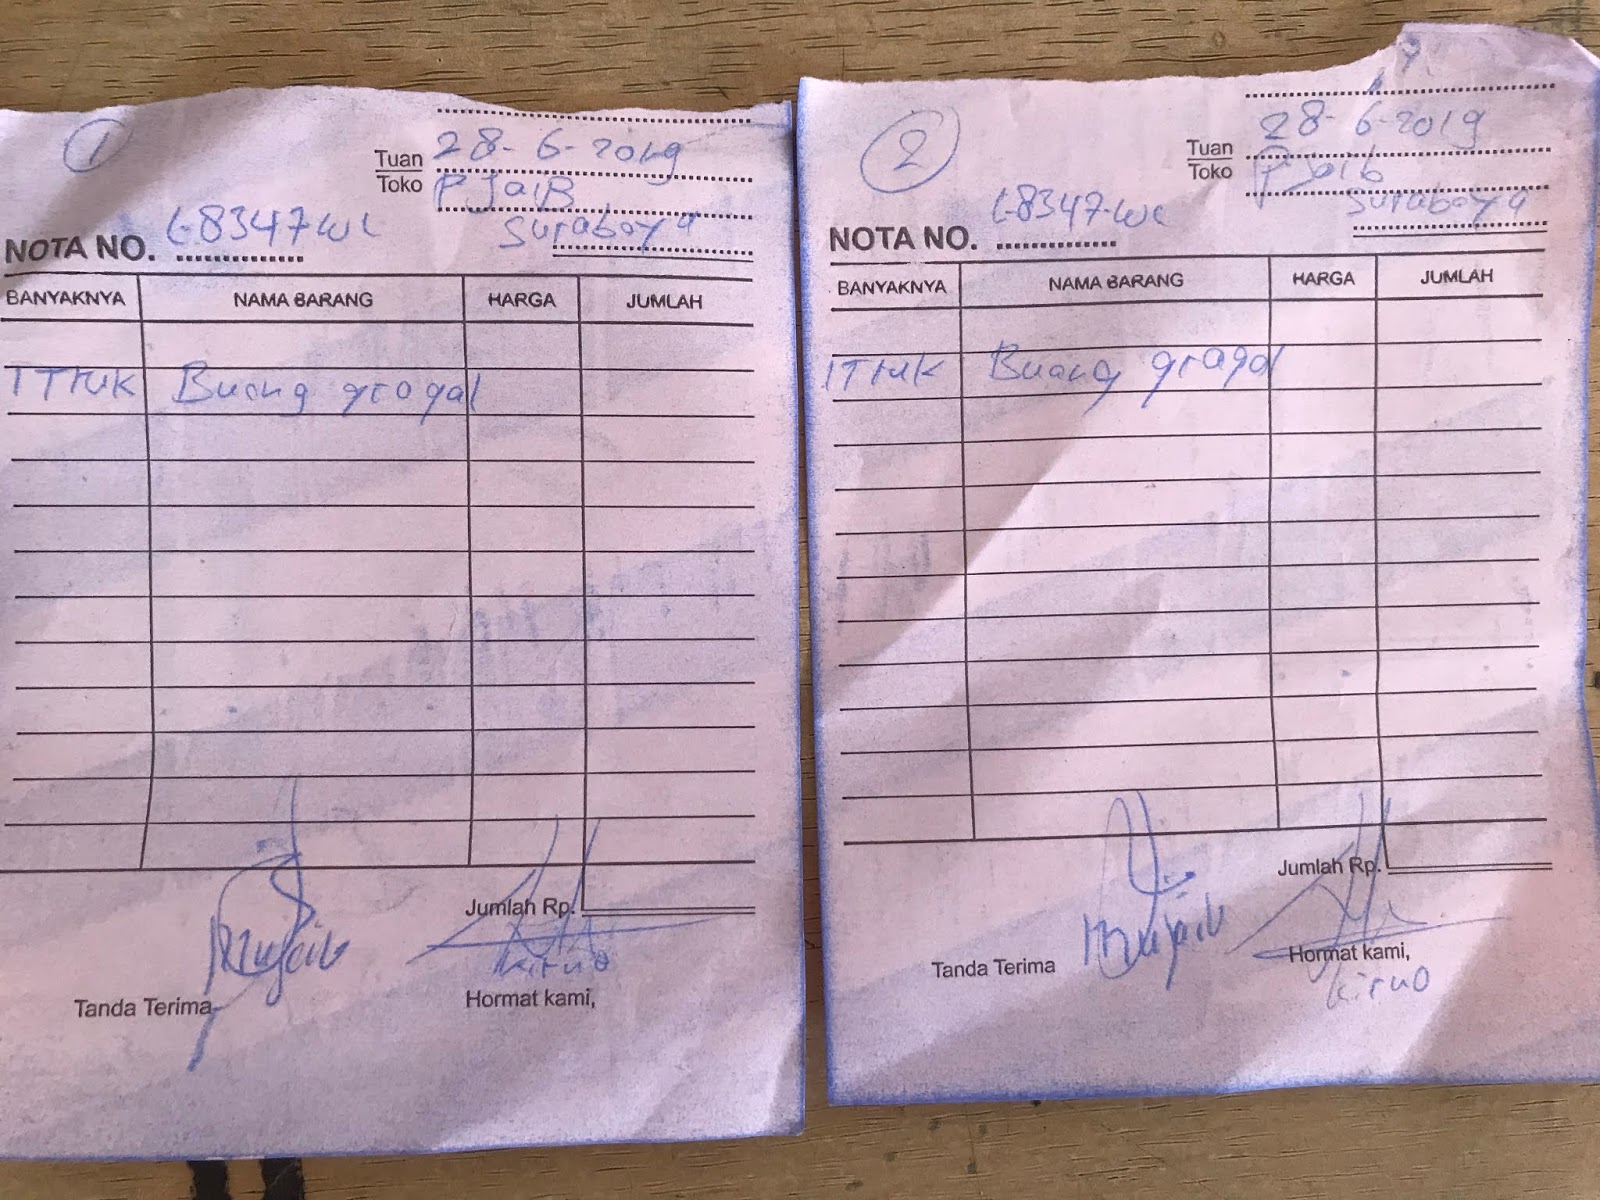 1
28-6-2019
Tuan
Toko
P JaiB
Surabaya
NOTA NO. L-8347-WL
BANYAKNYA NAMA BARANG HARGA JUMLAH
1 Truk Buang gragal
Jumlah Rp.
Mujaib
Kirno
Tanda Terima
Hormat kami,
2
28-6-2019
Tuan
Toko
P Jaib
Surabaya
NOTA NO. L-8347-WL
BANYAKNYA NAMA BARANG HARGA JUMLAH
1 Truk Buang gragal
Jumlah Rp.
Mujaib
Tanda Terima
Hormat kami,
Kirno